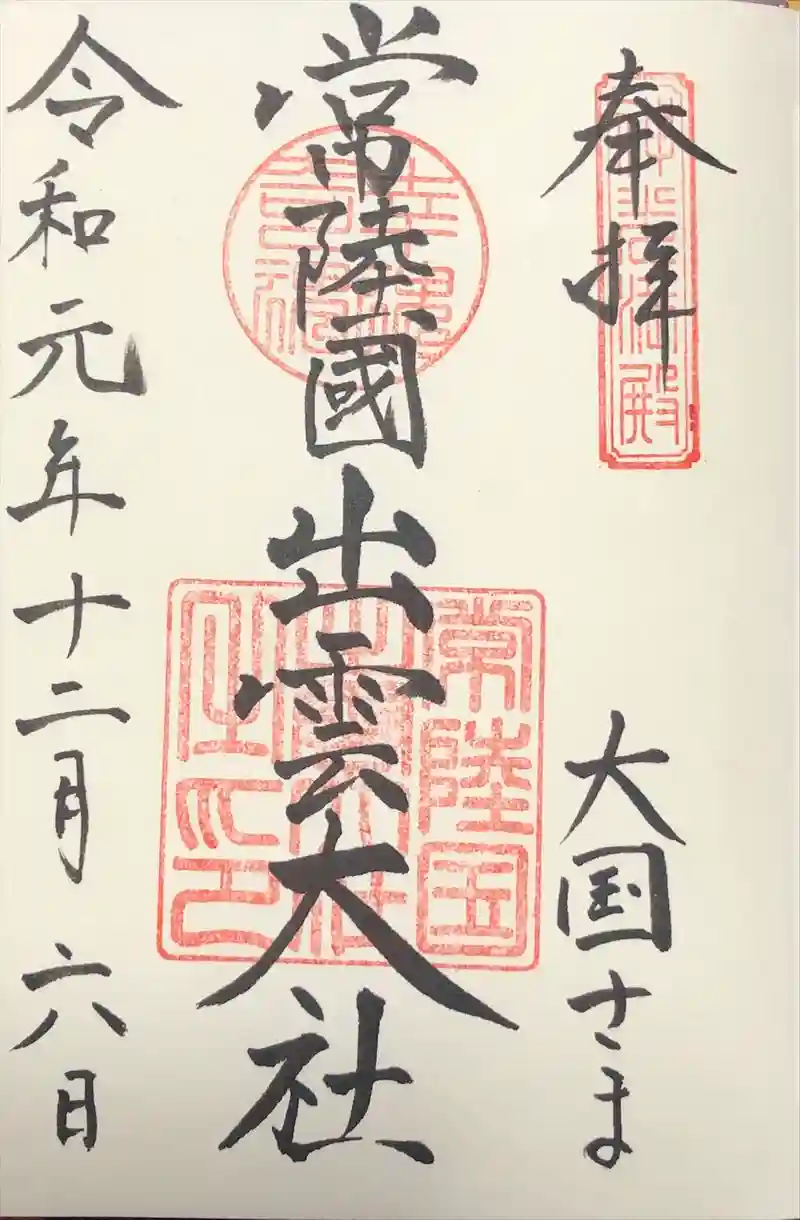 奉拝
大国さま
常陸國出雲大社
常陸国
令和元年十二月六日